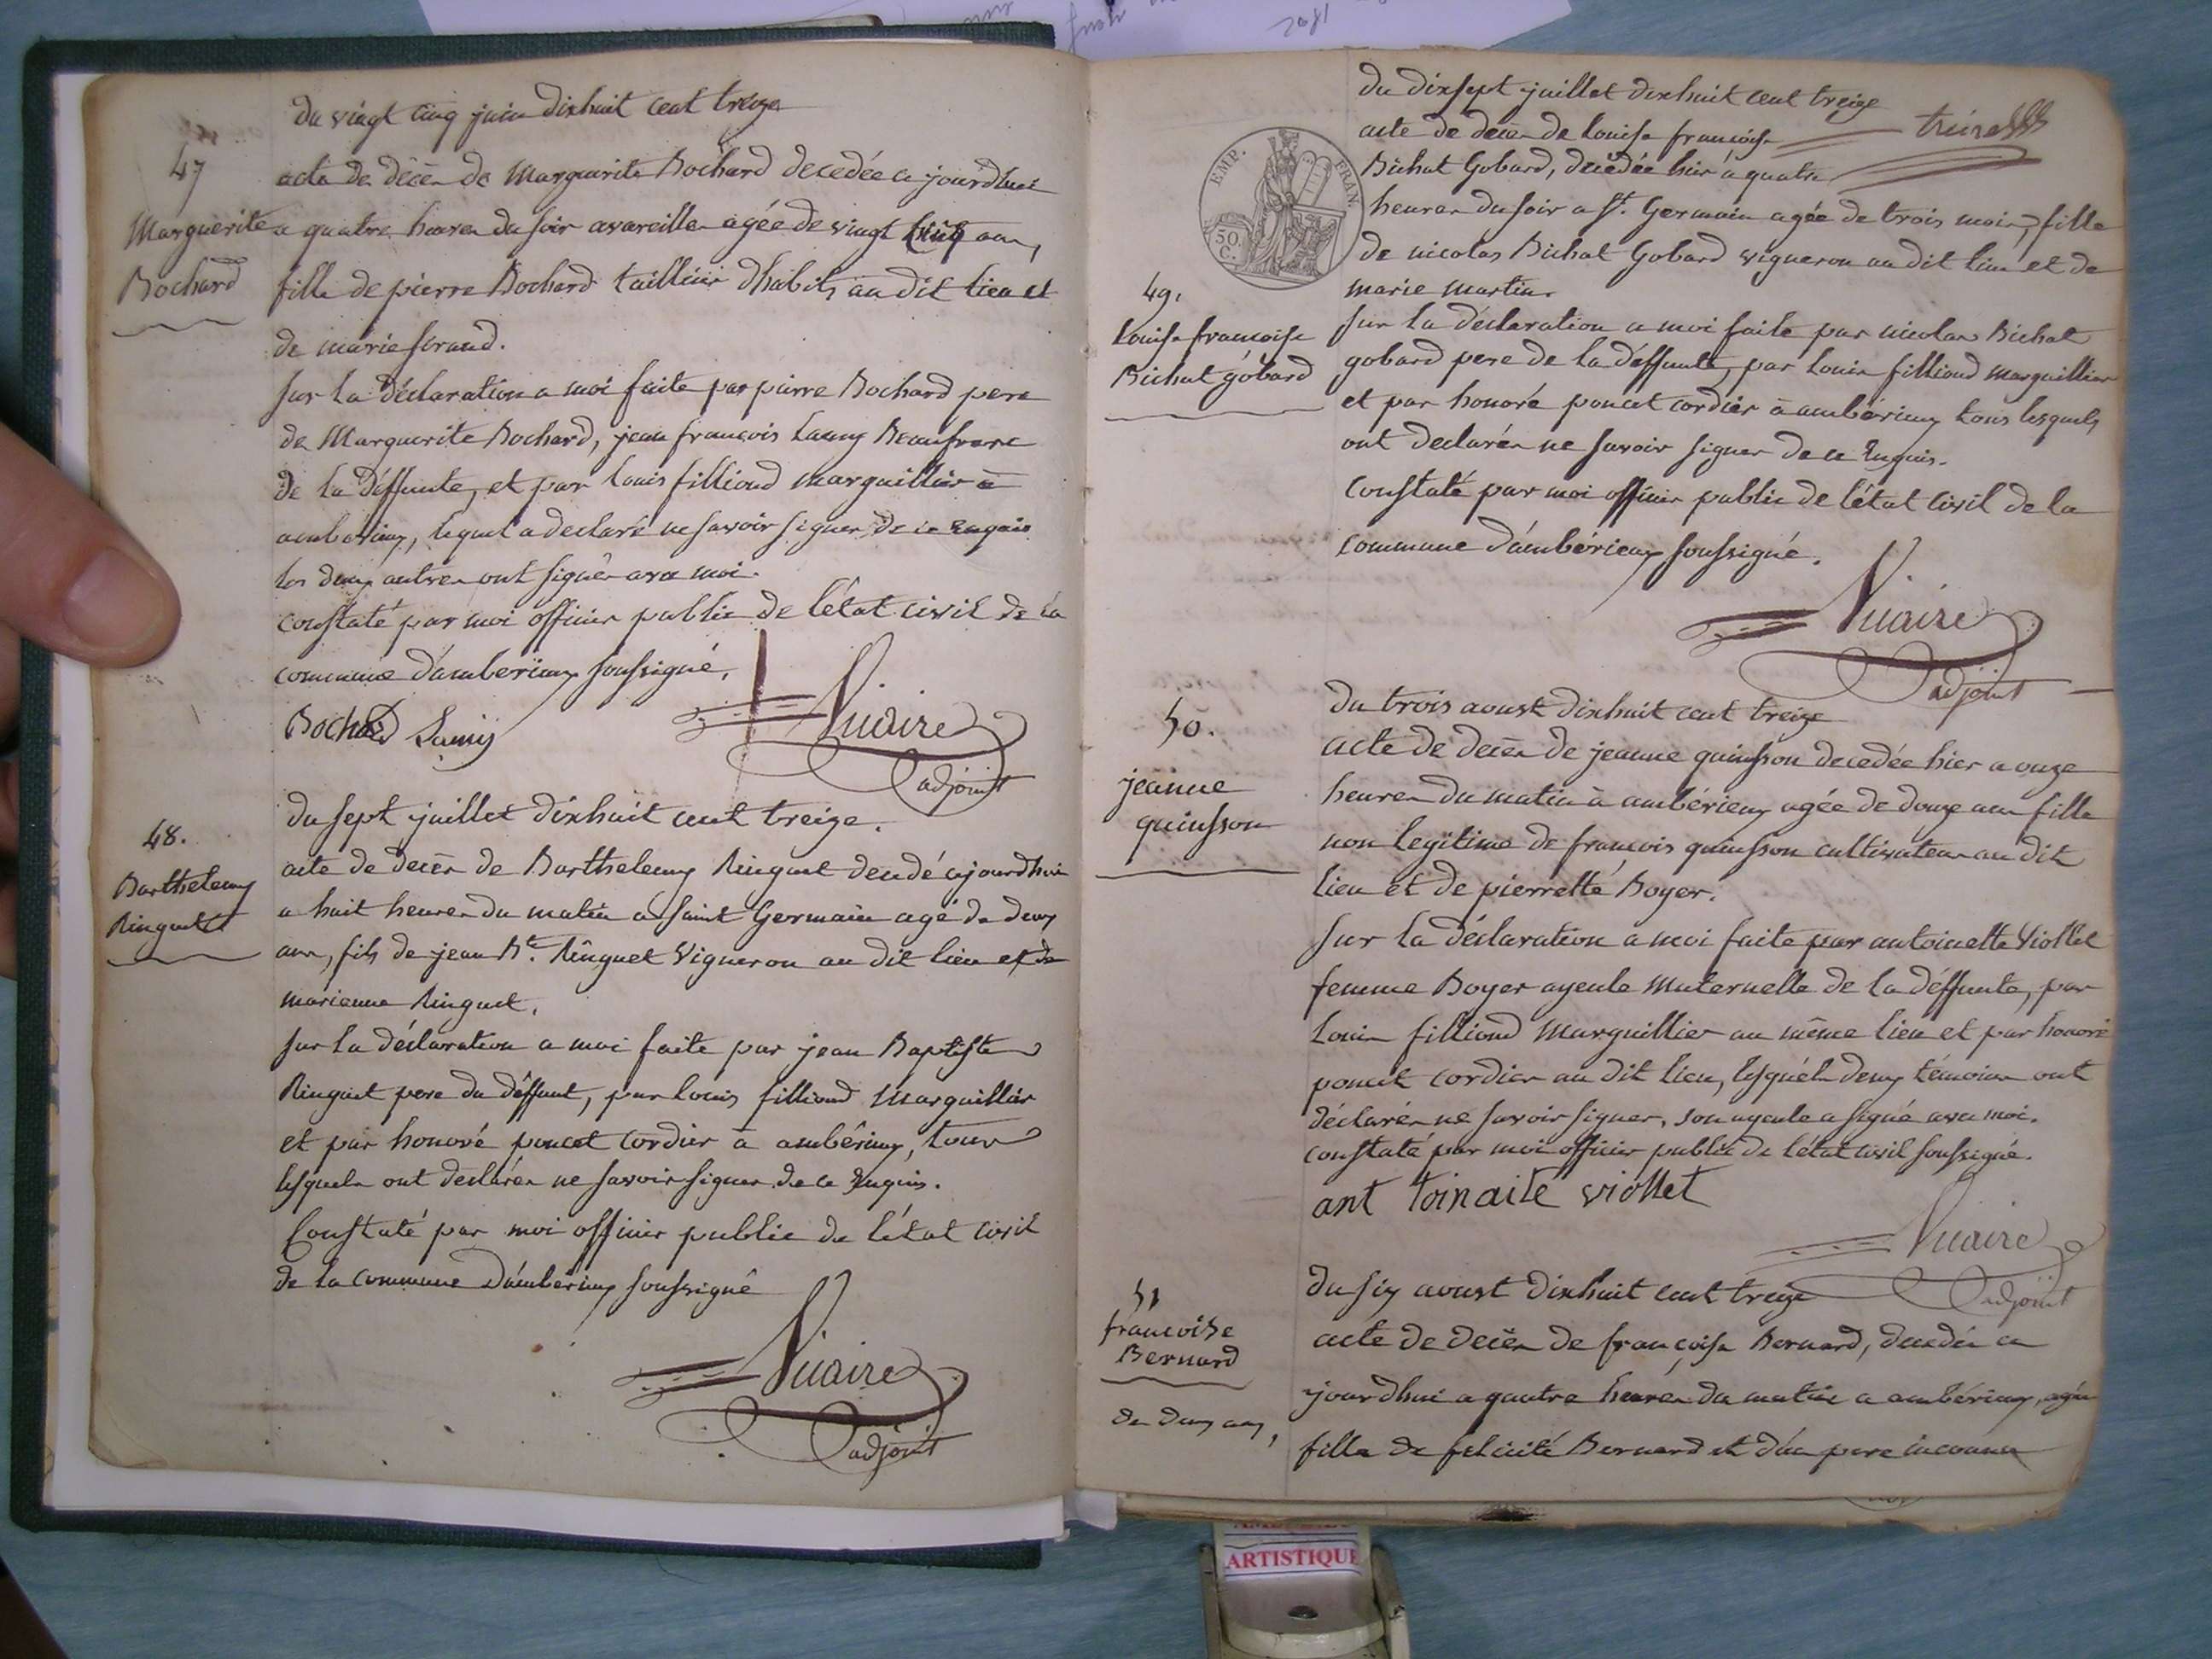 du vingt cinq juin dixhuit cent treize
47
Marguerite
Bochard
acte de décès de Marguerite Bochard decedée ce jourdhui
a quatre heures du soir avareilles agée de vingt cinq ans,
fille de pierre Bochard tailleur dhabits au dit lieu et
de marie
sur la déclaration a moi faite par pierre Bochard pere
de Marguerite Bochard, jean francois Lamy Beaufrere
de la déffunte, et par Louis filliond marguillier à
ambérieux, lequel a declaré ne savoir signer de ce Enquis
les deux autres ont signés avec moi.
constaté par moi officier public de l'état civil de la
commune d'amberieux soussigné.
Bochard Lamy
Vicaire
adjoint
48.
Barthelemy
Ringuet
du sept juillet dixhuit cent treize.
acte de decès de Barthelemy Ringuet decedé cejourdhui
a huit heures du matin à Saint Germain agé de deux
ans, fils de jean Bte. Ringuet Vigneron au dit lieu et de
marianne Ringuet.
sur la déclaration a moi faite par jean Baptiste
Ringuet pere du déffunt, par Louis filliond Marguillier
et par honoré poncet cordier à ambérieux, tous
lesquels ont declarés ne savoir signer de ce Enquis.
Constaté par moi officier public de l'état civil
de la commune d'ambérieux soussigné
Vicaire
adjoint
EMP. FRAN.
50.
C.
du dixsept juillet dixhuit cent treize
49.
Louise françoise
Bichat gobard
acte de decès de Louise françoise
Bichat Gobard, decèdée hier à quatre
heures du soir a St. Germain agée de trois mois, fille
de nicolas Bichat Gobard vigneron au dit lieu et de
marie martin.
sur la déclaration a moi faite par nicolas Bichat
gobard pere de la déffunte, par Louis filliond marguillier
et par honoré poncet cordier à ambérieux tous lesquels
ont declarés ne savoir signer de ce Enquis.
constaté par moi officier public de l'état civil de la
commune d'ambérieux soussigné.
Vicaire
adjoint
50.
jeanne
quinsson
du trois aoust dixhuit cent treize
acte de decès de jeanne quinsson decedée hier a onze
heures du matin à ambérieux agée de douze ans fille
non legitime de francois quinsson cultivateur au dit
lieu et de pierrette Boyer.
sur la déclaration a moi faite par antoinette Viollet
femme Boyer ayeule maternelle de la déffunte, par
Louis filliond Marguillier au même lieu et par honoré
poncet cordier au dit lieu, lesquels deux témoins ont
déclarés ne savoir signer, son ayeule a signé avec moi.
constaté par moi officier public de l'état civil soussigné.
ant toinaite viollet
Vicaire
adjoint
51
francoise
Bernard
du six aoust dixhuit cent treize
acte de decès de françoise Bernard, decedée ce
jourdhui a quatre heures du matin a ambérieux, agée
de deux ans,
fille de felicité Bernard et d'un pere inconnu
ARTISTIQUE